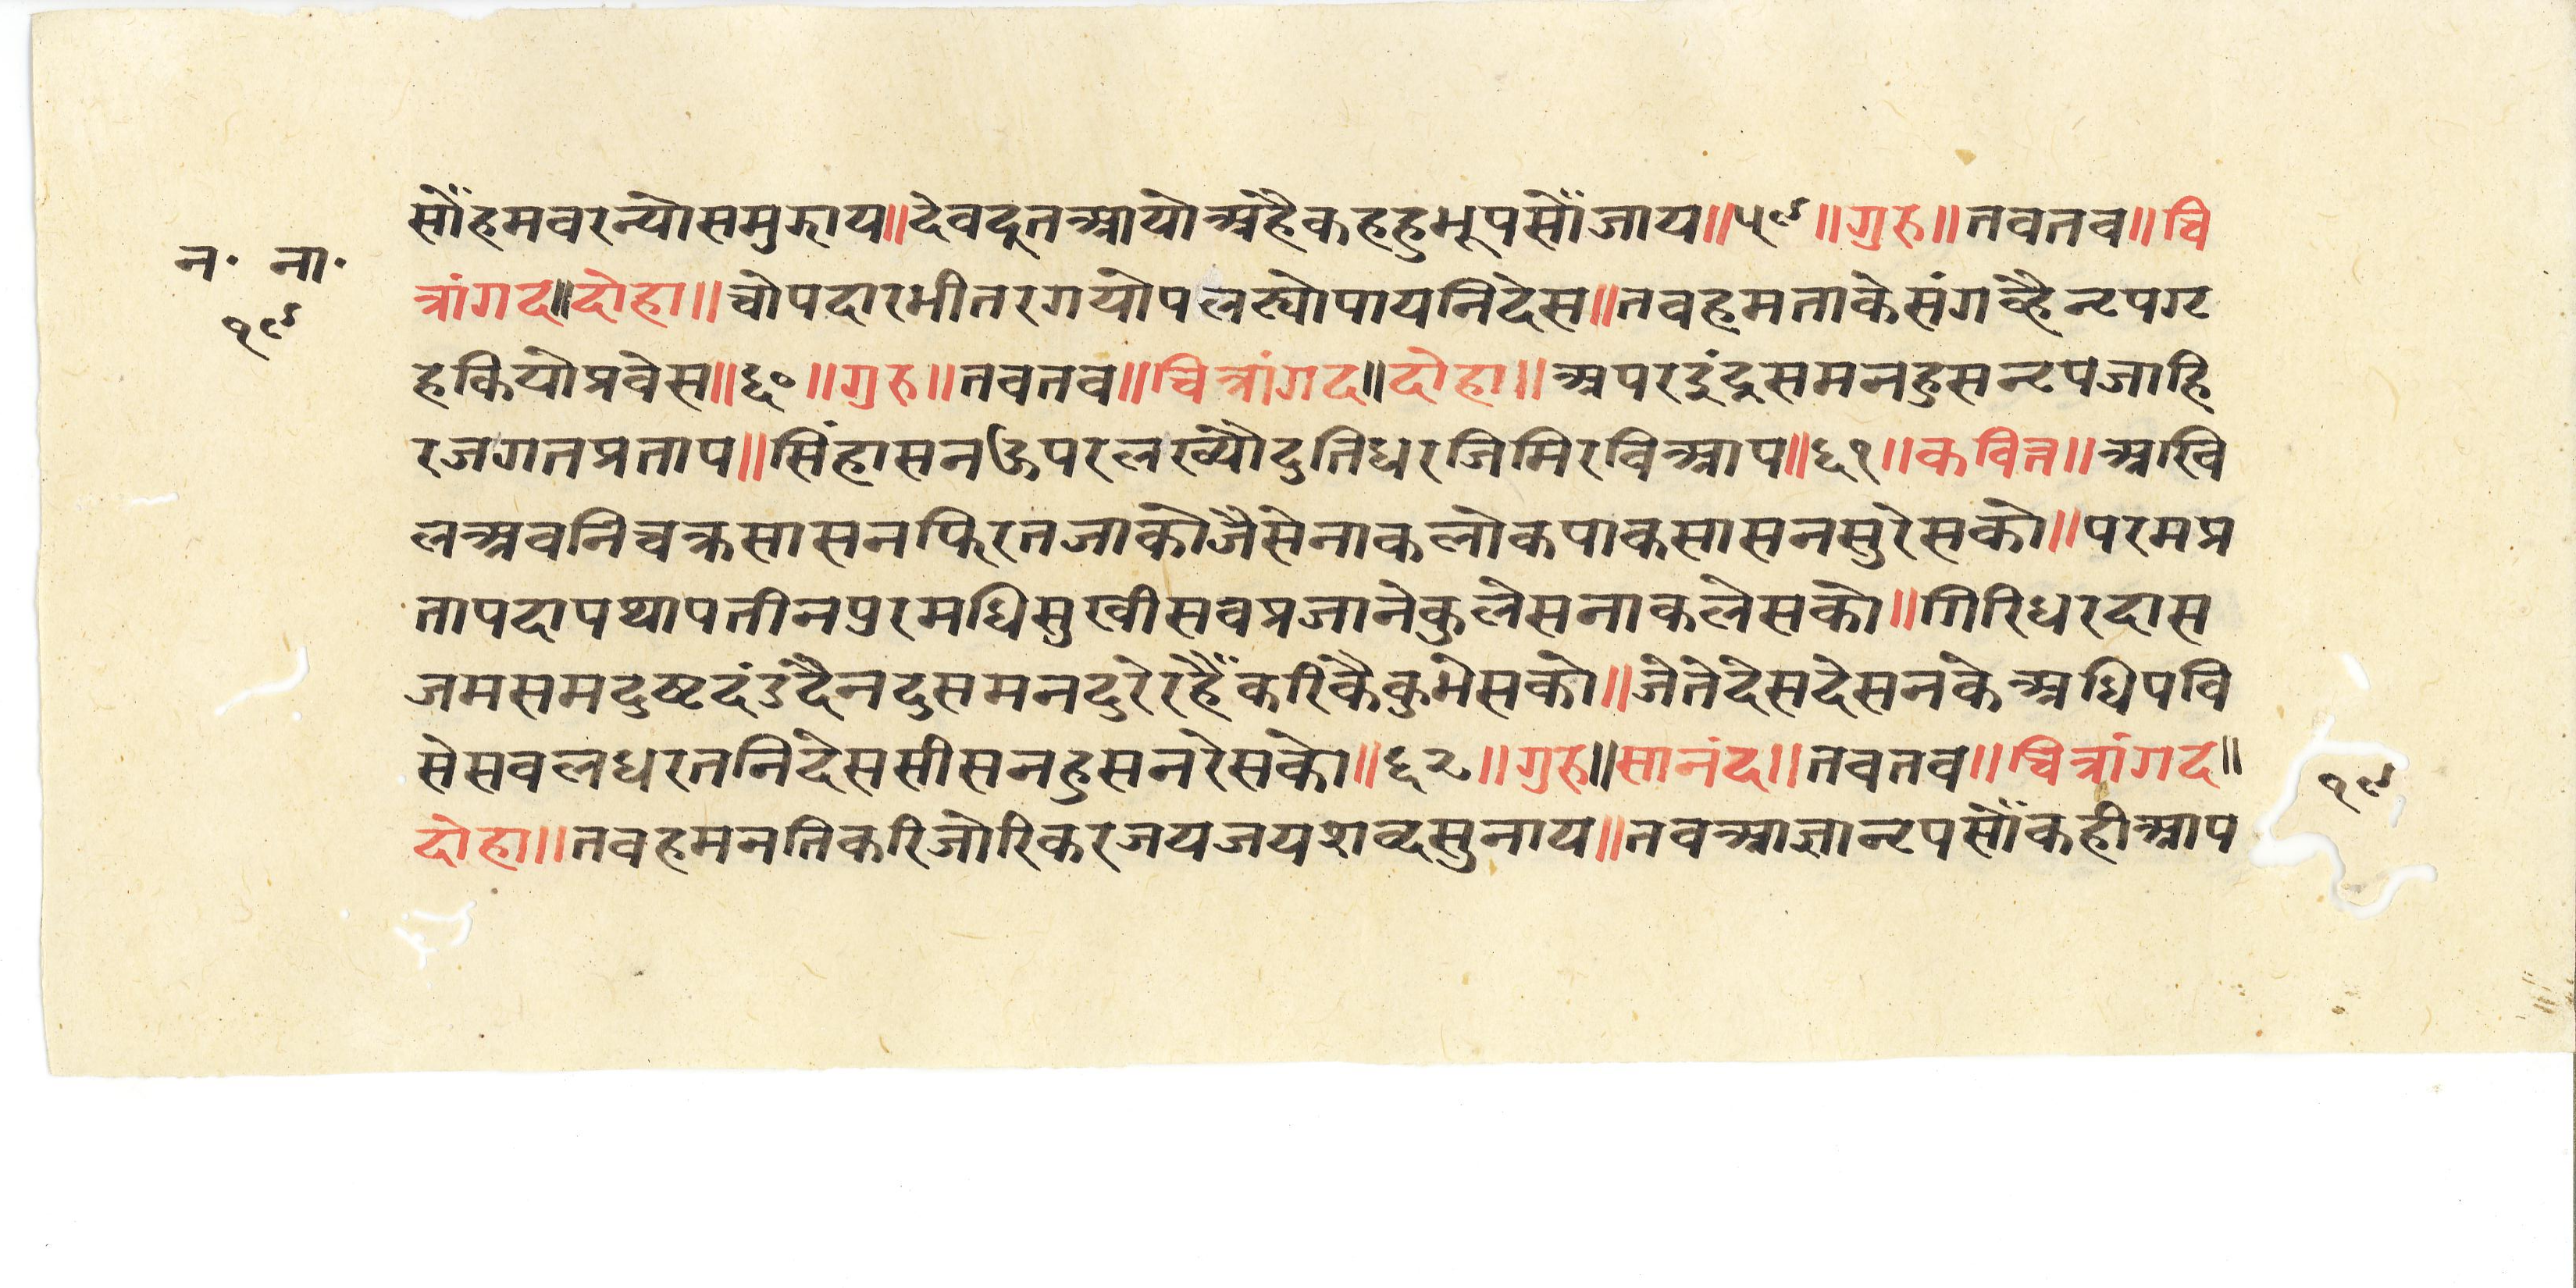 न॰ ना॰
१९
सोंँहमवरन्योसमुझाय॥देवदूतआयोअहैकहहुभूपसोंँजाय॥५९॥गुरु॥तवतव॥चि
त्रांगद॥दोहा॥चोपदारभीतरगयोपलट्योपायनिदेस॥तवहमताकेसंगव्हैनृपगृ
हकियोप्रवेस॥६०॥गुरु॥तवतव॥चित्रांगद॥दोहा॥अपरइंदुसमनहुसनृपजाहि
रजगतप्रताप॥सिंहासनऊपरलख्यौदुतिधरजिमिरविआप॥६१॥कवित्त॥अखि
लअवनिचक्रसासनफिरतजाकोजैसेनाकलोकपाकसासनसुरेसको॥परमप्र
तापदापथापतीनपुरमधिसुखीसवप्रजानेकुलेसनाकलेसको॥गिरिधरदास
जमसमदुष्टदंडदैनदुसमनदुरेरहैंँकरिंकैकुभेसको॥जेतेदेसदेसनकेअधिपवि
सेसवलधरतनिदेससीसनहुसनरेसको॥६२॥गुरु॥सानंद॥तवतव॥चित्रांगद॥
दोहा॥तवहमनतिकरिजोरिकरजयजयशव्दसुनाय॥तवआज्ञानृपसोंँकहीआप
१९